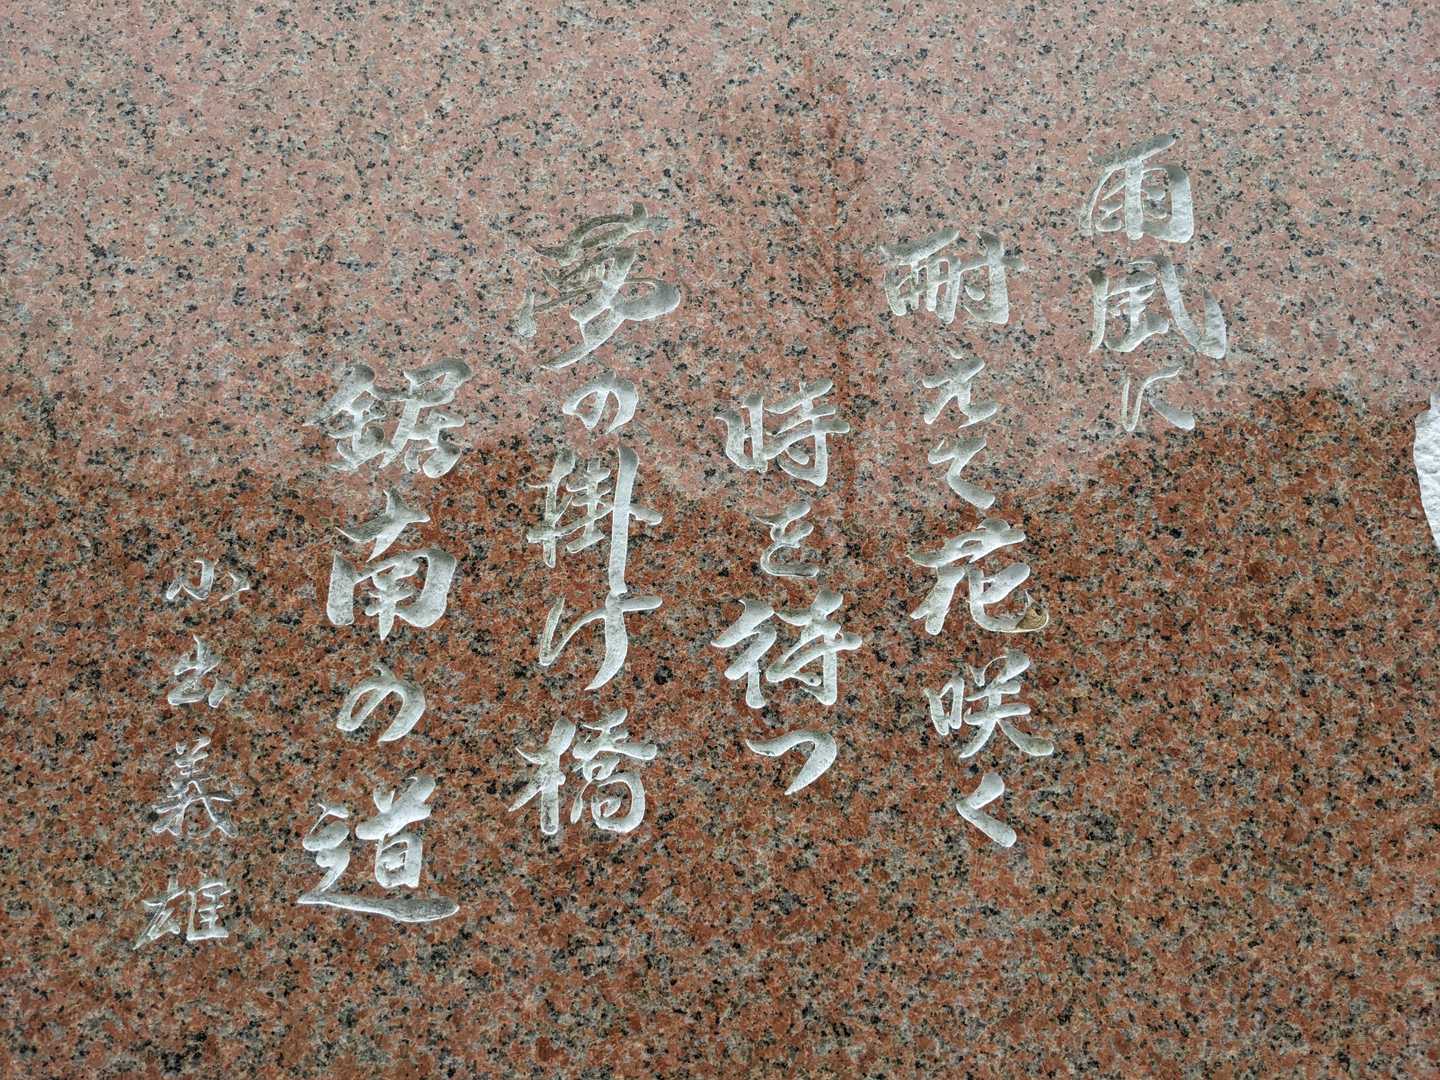 雨風に
耐えて花咲く
時を待つ
夢の掛け橋
鋸南の道
小出義雄